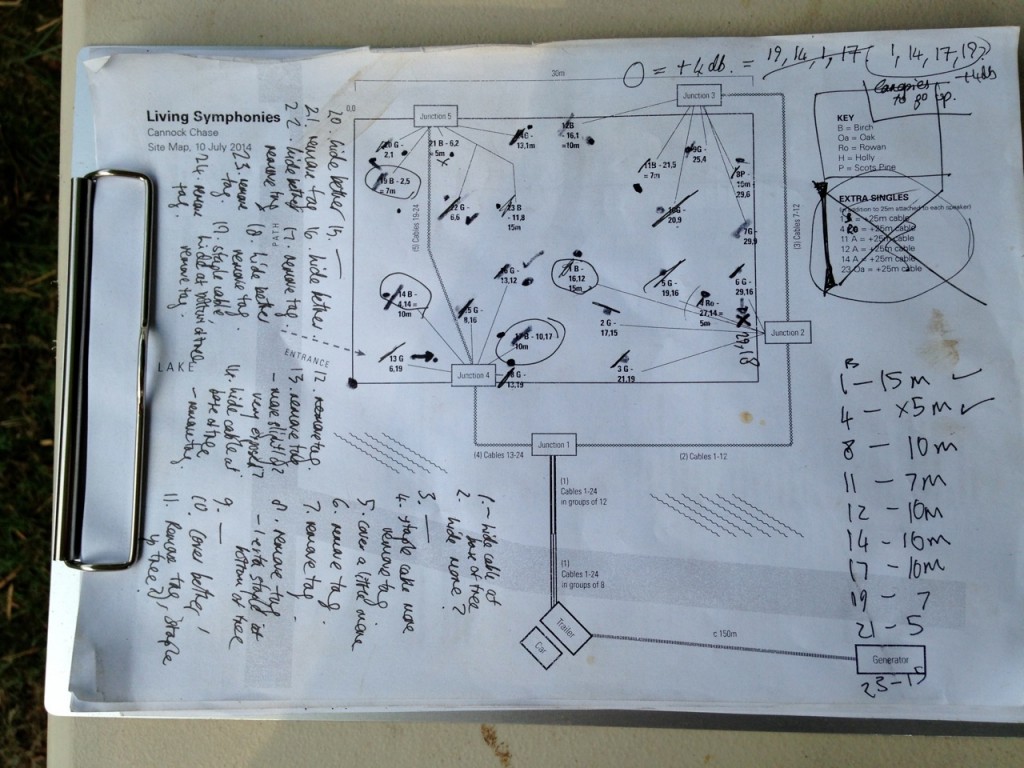 Living Symphonies
Cannock Chase
Site Map, 10 July 2014
O = +4db. = 19, 14, 1, 17 (1, 14, 17, 19)
+4db
Canopies
to go up.
KEY
B = Birch
Oa = Oak
Ro = Rowan
H = Holly
P = Scots Pine
EXTRA SINGLES
(in addition to 25m attached to each speaker)
= +25m cable
4 Ro = +25m cable
11 A = +25m cable
12 A = +25m cable
14 A = +25m cable
23 Oa = +25m cable
30m
0,0
Junction 5
Junction 3
Junction 2
Junction 4
Junction 1
20 G -
2,1
21 B - 6,2
= 5m
19 B - 2,5
= 7m
22 G -
6,6
23 B
- 11,8
15m
13,1m
12B
16,1
=10m
11B - 21,5
= 7m
9G -
25,4
8P -
10m
29,6
10G -
20,9
7G -
29,9
14 B -
4,14 =
10m
15 G -
8,16
16 G -
13,12
17 B - 10,17
10m
18 G -
13,19
13 G
6,19
1 B -
16,12
15m
2 G -
17,15
3 G -
21,19
5 G -
19,16
4 Ro -
27,14 =
5m
6 G -
29,16
29,18
(5) Cables 19-24
(3) Cables 7-12
(4) Cables 13-24
(2) Cables 1-12
(1)
Cables 1-24
in groups of 12
(1)
Cables 1-24
in groups of 8
PATH
ENTRANCE
LAKE
Trailer
Car
c.150m
Generator
B
1 - 15m ✓
4 - x5m ✓
8 - 10m
11 - 7m
12 - 10m
14 - 10m
17 - 10m
19 - 7
21 - 5
23 - 15
1. - hide cable at
base of tree
2. hide more?
3. —
4. staple cable more
remove tag
5. cover a little more
6. remove tag
7. remove tag.
8. remove tag
- extra staple at
bottom of tree
9. —
10. cover better!
11. Remove tag, staple
up tree?
12. remove tag
13. remove tag
- move slightly
very exposed?
14. hide cable at
base of tree
- remove tag.
15. —
16. hide better
17. remove tag
18. hide better
remove tag.
19. staple cable
remove tag
20. hide better
21. remove tag
22. hide better
remove tag
23. remove
tag.
24. remove
tag.